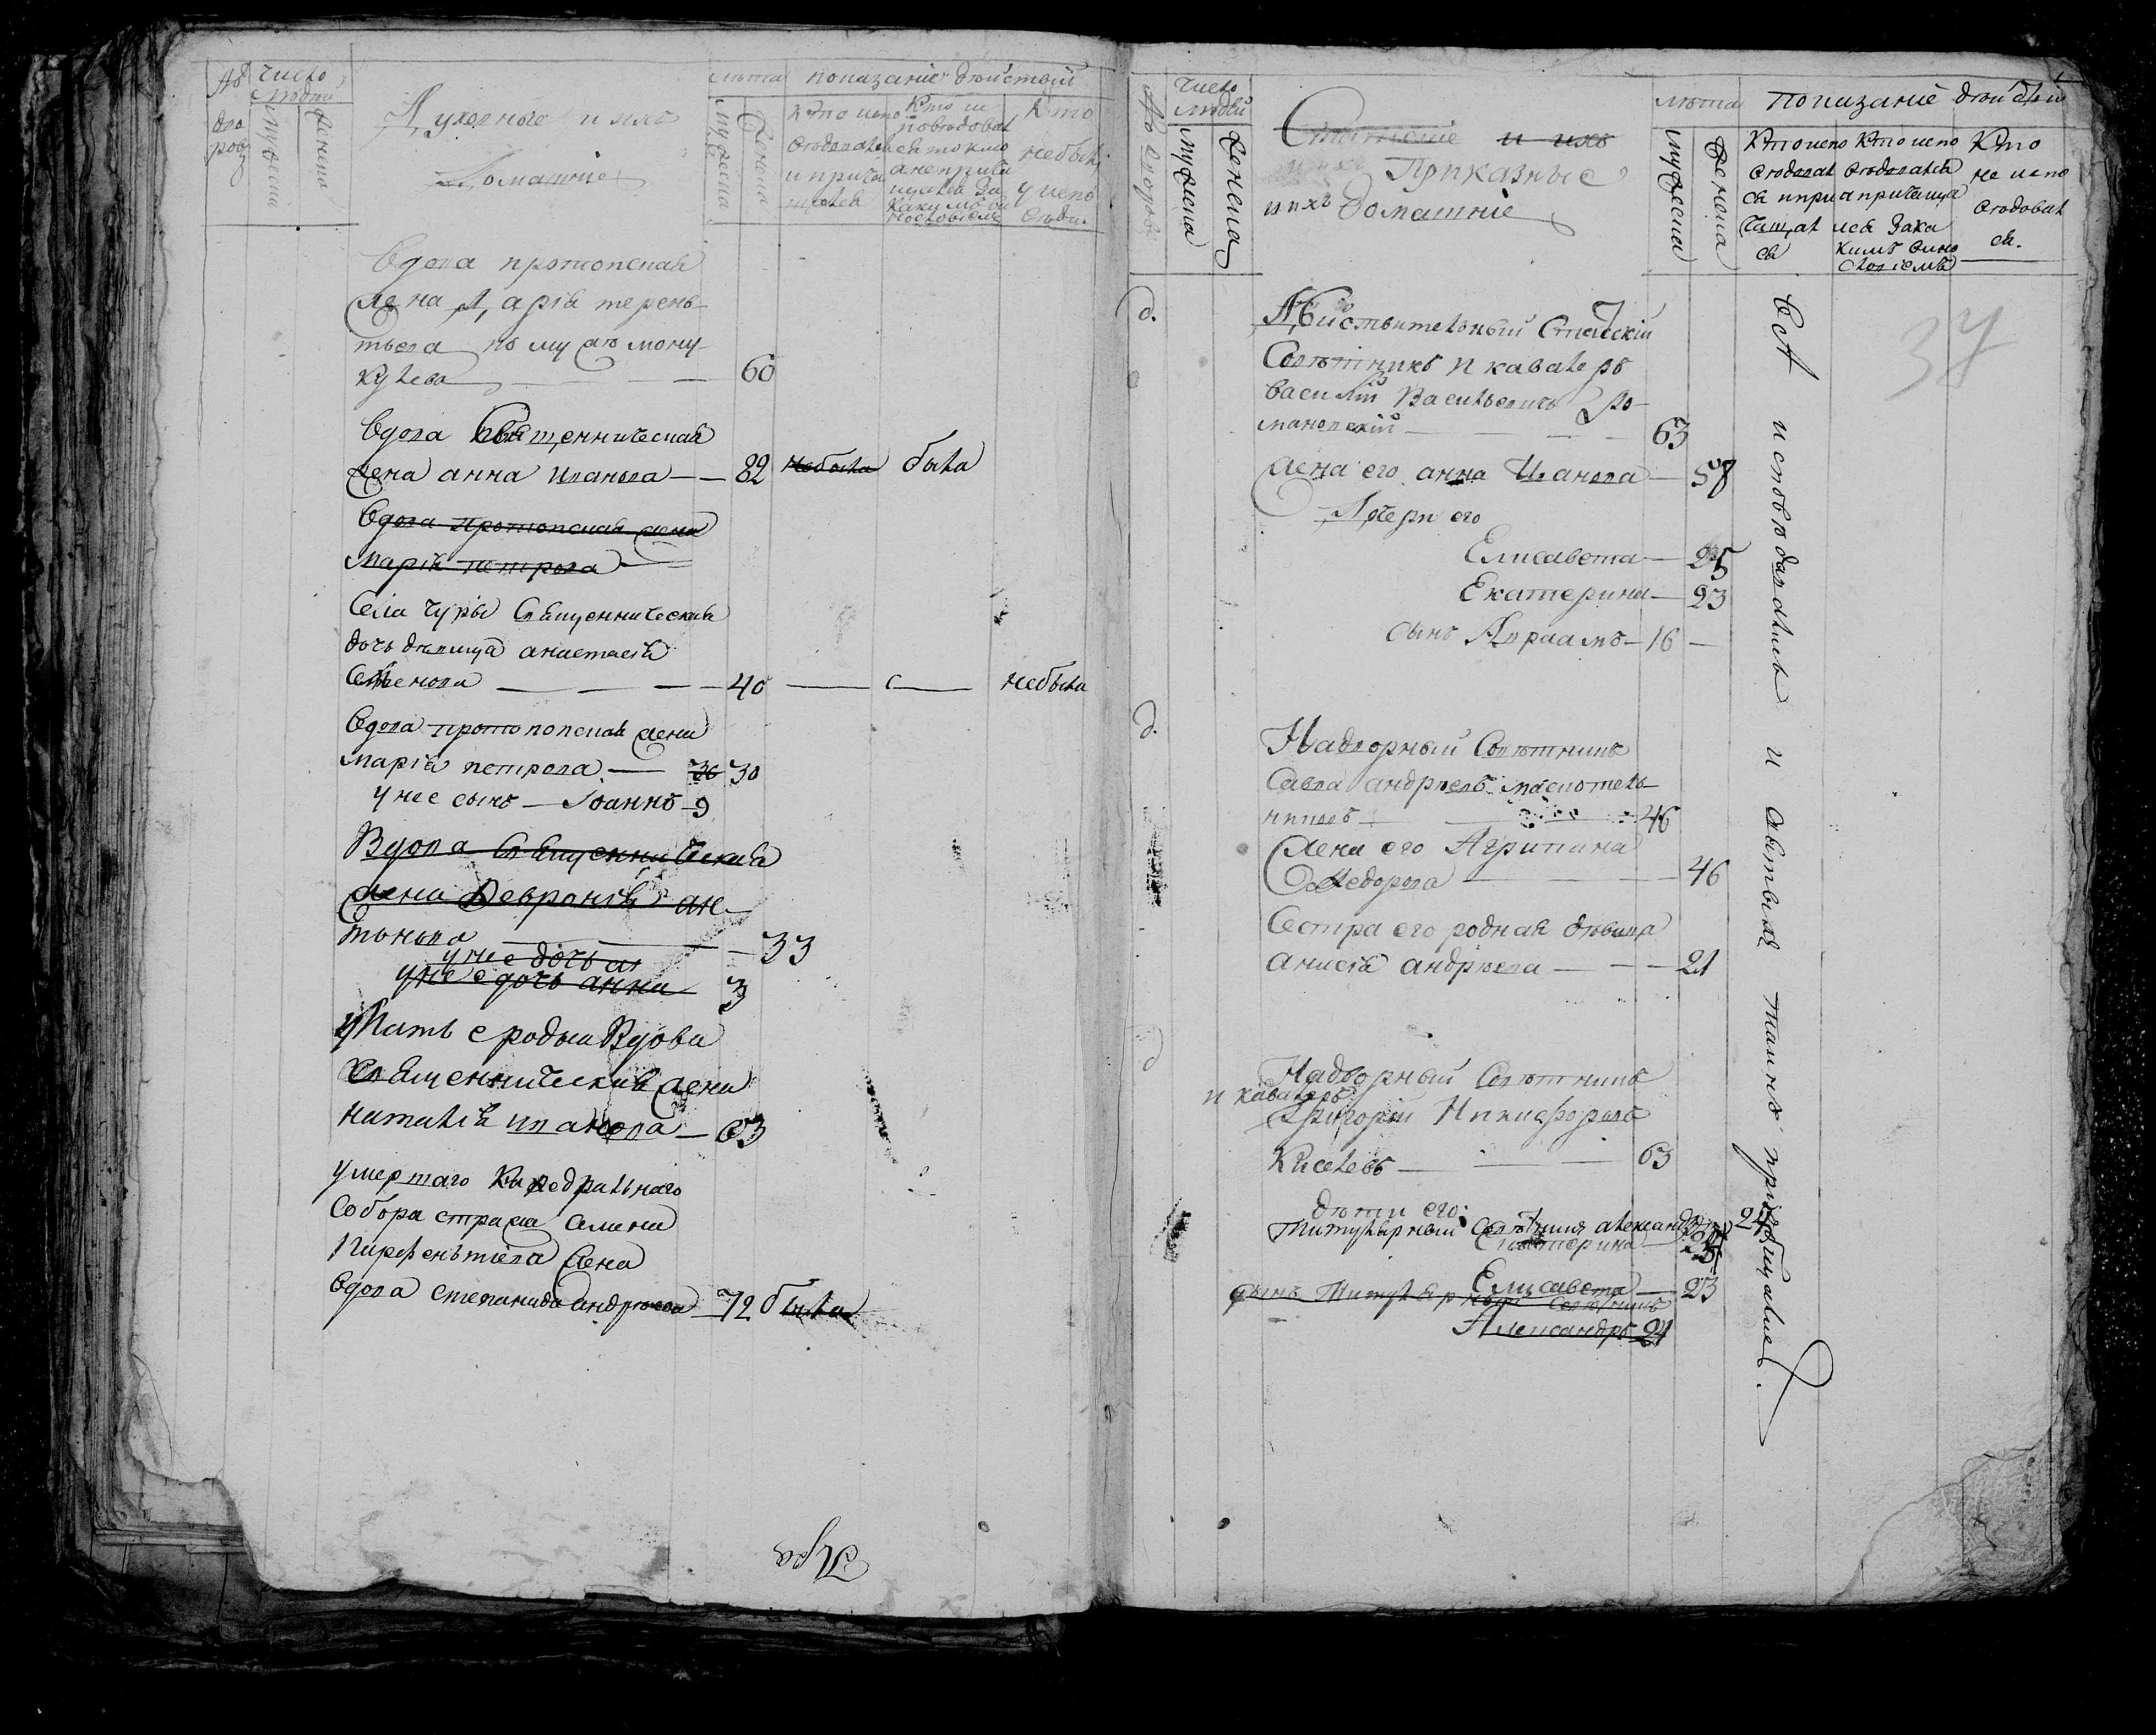 № дворовъ
Число людей
мужеска
женска
Духовные и ихъ
домашніе
лѣта
мужеска
женска
показаніе дѣйствій
Кто исповѣдовался и причащался
Кто исповѣдовался токмо а не причащался и за какимъ винословіемъ
Кто не былъ у исповѣди
Вдова протопопская
жена Дарія терень-
тьева по мужу мону-
кулева 60
Вдова священническая
жена анна иванова 82 не была была
Вдова протопопская жена
Марія петрова
Села Чуры священническая
дочь дѣвица анастасія
Семенова 40 не была
Вдова протопопская жена
Марія петрова 36 30
у нее сынъ Іоаннъ 9
Вдова священническая
жена Февронія ан-
тонова 33
у нее дочь
у нее дочь анна 3
Мать ея родная вдова
священническая жена
наталія иванова 63
умершаго Кафедральнаго
собора сторожа Симеона
Парфентіева жена
вдова степанида андреева 72 была
№ дворовъ
Число людей
мужеска
женска
Статскіе и ихъ
Приказные
и ихъ домашніе
лѣта
мужеска
женска
показаніе дѣйствій
Кто исповѣдовался и причащался
Кто исповѣдовался а не причащался и за какимъ виносломіемъ
Кто не исповѣдовался.
37
д.
Дѣйствительный Статскій
Совѣтникъ и кавалеръ
Василій Васильевичъ Ро-
мановскій 63
жена его анна Ивановна 57
Дочери его
Елисавета 25
Екатерина 23
сынъ Авраамъ 16
д.
Надворный Совѣтникъ
Савва андреевъ
46
жена его Агрипина
Федорова 46
Сестра его родная дѣвица
анисія андреева 21
д
Надворный Совѣтникъ
и кавалеръ
Григорій Никифоровъ
Киселевъ 63
дѣти его:
титулярный совѣтникъ александръ 24
Екатерина
Елисавета 23
сынъ титулярный совѣтникъ
Александръ 21
всѣ исповѣдовались и святыхъ таинъ пріобщались.